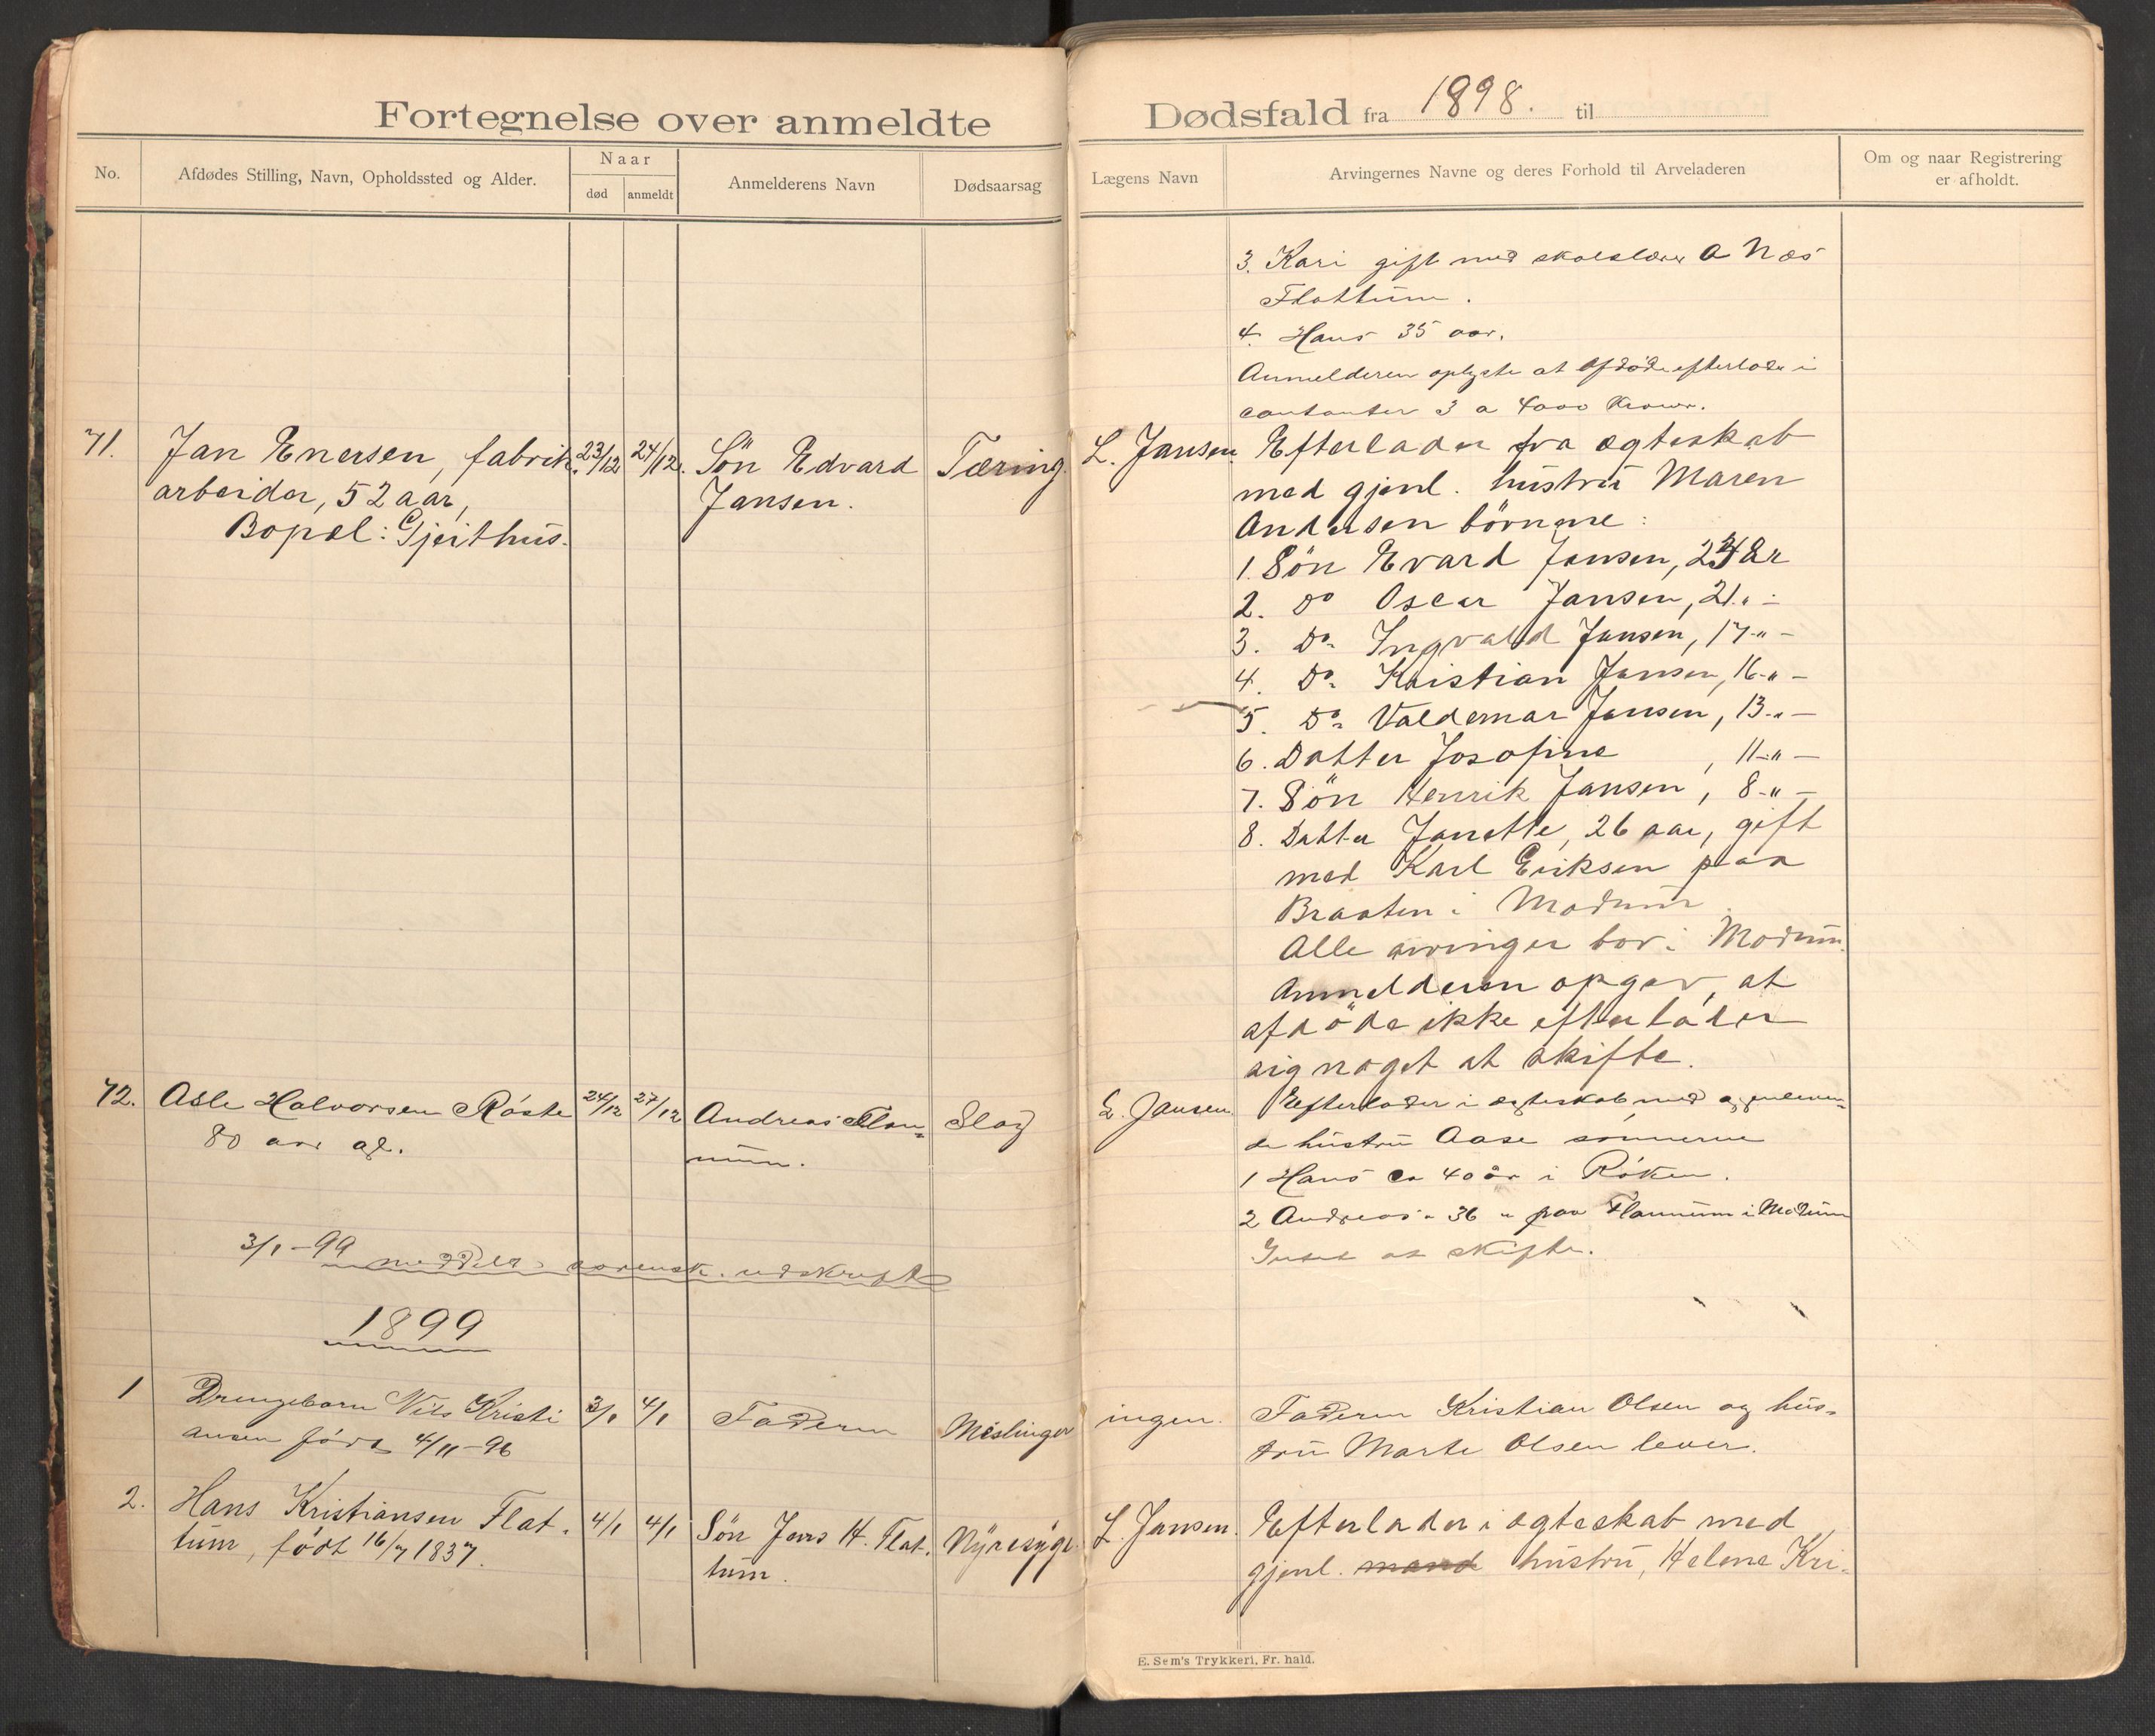 Fortegnelse over anmeldte
No.
Afdødes Stilling, Navn, Opholdssted og Alder.
Naar
død
anmeldt
Anmelderens Navn
Dødsaarsag
71.
Jan Enersen, fabrik.
23/12
24/12.
Sön Edvard
Tæring.
arbeider, 52 aar,
Jansen.
Bopæl: Gjeithus.
72.
Asle Halvorsen Røste
24/12
27/12
Andreas Flan=
Slag
80 aar gl.
num.
3/1-99 meddelt sorensk. udskrift
1899
1
Drengebarn Nils Kristi
3/1
4/1
Faderen
Meslinger
ansen født 4/11-96
2.
Hans Kristiansen Flat.
4/1
4/1
Sön Jens H. Flat.
Nyresyge.
tum, født 16/7 1837.
tum.
Dødsfald fra 1898. til
Lægens Navn
Arvingernes Navne og deres Forhold til Arveladeren
Om og naar Registrering
er afholdt.
3. Kari gift med skolelærer A Næs
Flattum.
4. Hans 35 aar.
Anmelderen oplyste at afdøde efterlader i
contanter 3 a 4000 Kroner.
L. Jansen.
Efterlader fra ægteskab
med gjenl. hustru Maren
Andersen börnene:
1. Sön Evard Jansen, 24 år
2. Do Oscar Jansen, 21 " -
3. Do Ingvald Jansen, 17 -"-
4. Do Kristian Jansen, 16 -"-
5. Do Valdemar Jansen, 13 -"-
6. Datter Josofine , 11 -"-
7. Sön Henrik Jansen, 8 -"-
8. Datter Janette, 26 aar, gift
med Karl Eriksen paa
Braaten i Modum.
Alle arvinger bor i Modum.
Anmelderen opgav, at
afdöde ikke efterlader
sig noget at skifte.
L. Jansen.
Efterlader i ægteskab med gjenleven=
de hustru Aase sønnerne
1 Hans ca 40 år i Røken.
2 Andreas " 36 " paa Flannum i Modum
Intet at skifte.
ingen.
Faderen Kristian Olsen og hus=
tru Marte Olsen lever.
L. Jansen.
Efterlader i ægteskab med
gjenl. mand hustru, Helene Kri-
E. Sem's Trykkeri, Fr. hald.